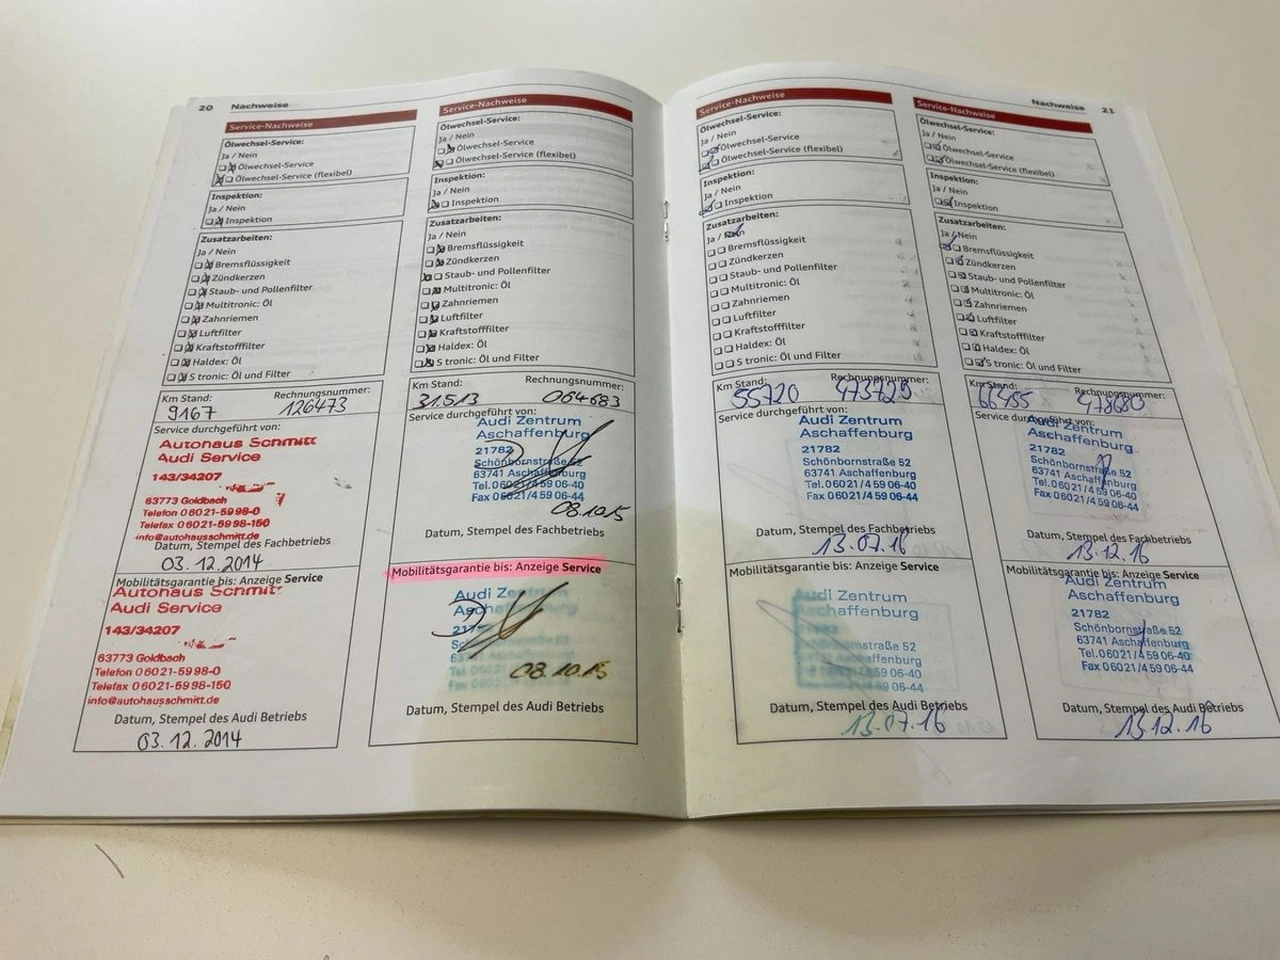 20 Nachweise
Service-Nachweise
Ölwechsel-Service:
Ja / Nein
Ölwechsel-Service
Ölwechsel-Service (flexibel)
Inspektion:
Ja / Nein
Inspektion
Zusatzarbeiten:
Ja / Nein
Bremsflüssigkeit
Zündkerzen
Staub- und Pollenfilter
Multitronic: Öl
Zahnriemen
Luftfilter
Kraftstofffilter
Haldex: Öl
S tronic: Öl und Filter
Km Stand: Rechnungsnummer:
9167 126473
Service durchgeführt von:
Autohaus Schmitt
Audi Service
143/34207
63773 Goldbach
Telefon 06021-5998-0
Telefax 06021-5998-150
info@autohausschmitt.de
Datum, Stempel des Fachbetriebs
03.12.2014
Mobilitätsgarantie bis: Anzeige Service
Autohaus Schmitt
Audi Service
143/34207
63773 Goldbach
Telefon 06021-5998-0
Telefax 06021-5998-150
info@autohausschmitt.de
Datum, Stempel des Audi Betriebs
03.12.2014
Service-Nachweise
Ölwechsel-Service:
Ja / Nein
Ölwechsel-Service
Ölwechsel-Service (flexibel)
Inspektion:
Ja / Nein
Inspektion
Zusatzarbeiten:
Ja / Nein
Bremsflüssigkeit
Zündkerzen
Staub- und Pollenfilter
Multitronic: Öl
Zahnriemen
Luftfilter
Kraftstofffilter
Haldex: Öl
S tronic: Öl und Filter
Km Stand: Rechnungsnummer:
31.513 064683
Service durchgeführt von:
Audi Zentrum
Aschaffenburg
21782
Schönbornstraße 52
63741 Aschaffenburg
Tel. 06021/4 59 06-40
Fax 06021/4 59 06-44
08.10.15
Datum, Stempel des Fachbetriebs
Mobilitätsgarantie bis: Anzeige Service
Audi Zentrum
Aschaffenburg
21782
08.10.15
Datum, Stempel des Audi Betriebs
Nachweise 21
Service-Nachweise
Ölwechsel-Service:
Ja / Nein
Ölwechsel-Service
Ölwechsel-Service (flexibel)
Inspektion:
Ja / Nein
Inspektion
Zusatzarbeiten:
Ja / Nein
Bremsflüssigkeit
Zündkerzen
Staub- und Pollenfilter
Multitronic: Öl
Zahnriemen
Luftfilter
Kraftstofffilter
Haldex: Öl
S tronic: Öl und Filter
Km Stand: Rechnungsnummer:
55720 473725
Service durchgeführt von:
Audi Zentrum
Aschaffenburg
21782
Schönbornstraße 52
63741 Aschaffenburg
Tel. 06021/4 59 06-40
Fax 06021/4 59 06-44
Datum, Stempel des Fachbetriebs
13.07.16
Mobilitätsgarantie bis: Anzeige Service
Audi Zentrum
Aschaffenburg
Schönbornstraße 52
63741 Aschaffenburg
06021/4 59 06-40
06021/4 59 06-44
Datum, Stempel des Audi Betriebs
13.07.16
Service-Nachweise
Ölwechsel-Service:
Ja / Nein
Ölwechsel-Service
Ölwechsel-Service (flexibel)
Inspektion:
Ja / Nein
Inspektion
Zusatzarbeiten:
Ja / Nein
Bremsflüssigkeit
Zündkerzen
Staub- und Pollenfilter
Multitronic: Öl
Zahnriemen
Luftfilter
Kraftstofffilter
Haldex: Öl
S tronic: Öl und Filter
Km Stand: Rechnungsnummer:
66455 478680
Service durchgeführt von:
Audi Zentrum
Aschaffenburg
21782
Schönbornstraße 52
63741 Aschaffenburg
Tel. 06021/4 59 06-40
Fax 06021/4 59 06-44
Datum, Stempel des Fachbetriebs
13.12.16
Mobilitätsgarantie bis: Anzeige Service
Audi Zentrum
Aschaffenburg
21782
Schönbornstraße 52
63741 Aschaffenburg
Tel. 06021/4 59 06-40
Fax 06021/4 59 06-44
Datum, Stempel des Audi Betriebs
13.12.16